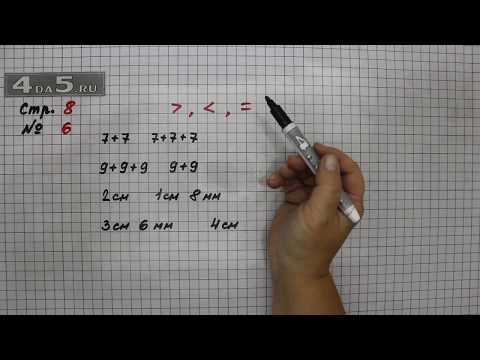 4 DA 5.RU
Стр. 8 >, <, =
№ 6
7+7 7+7+7
9+9+9 9+9
2 см 1 см 8 мм
3 см 6 мм 4 см